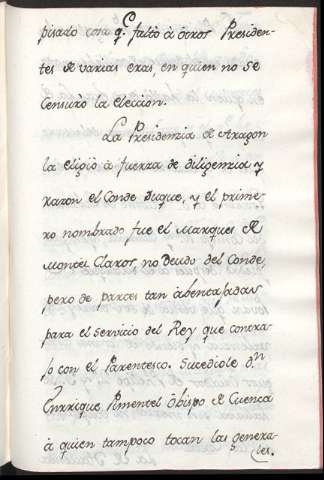 pisado cosa q.e falto à otros Presiden-
tes de varias eras, en quien no se
Censurò la eleccion.
La Presidenzia de Aragon
la eligiò à fuerza de diligenzia y
razon el Conde Duque, y el prime-
ro nombrado fue el Marques de
Montes Claros, no Deudo del Conde
pero de partes tan àbentajadas
para el servicio del Rey que contra-
jo con el Parentesco. Sucediole dn
Enrrique Pimentel Obispo de Cuenca
à quien tampoco tocan las genera-
les.